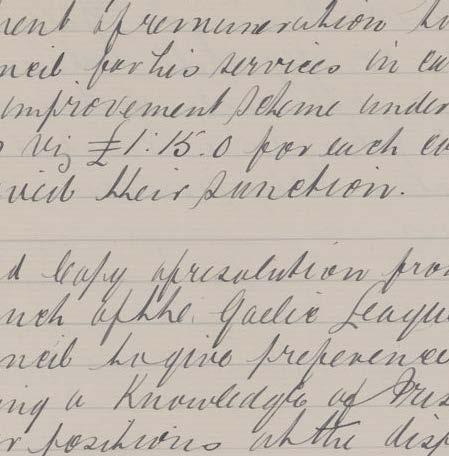 ment of remuneration to
ncil for his services in ca
improvement scheme under
viz £1:15.0 for each co
ived their sanction.
d Copy of resolution from
nch of the Gaelic League
ncil to give preference
ing a Knowledge of Iris
r positions at the disp